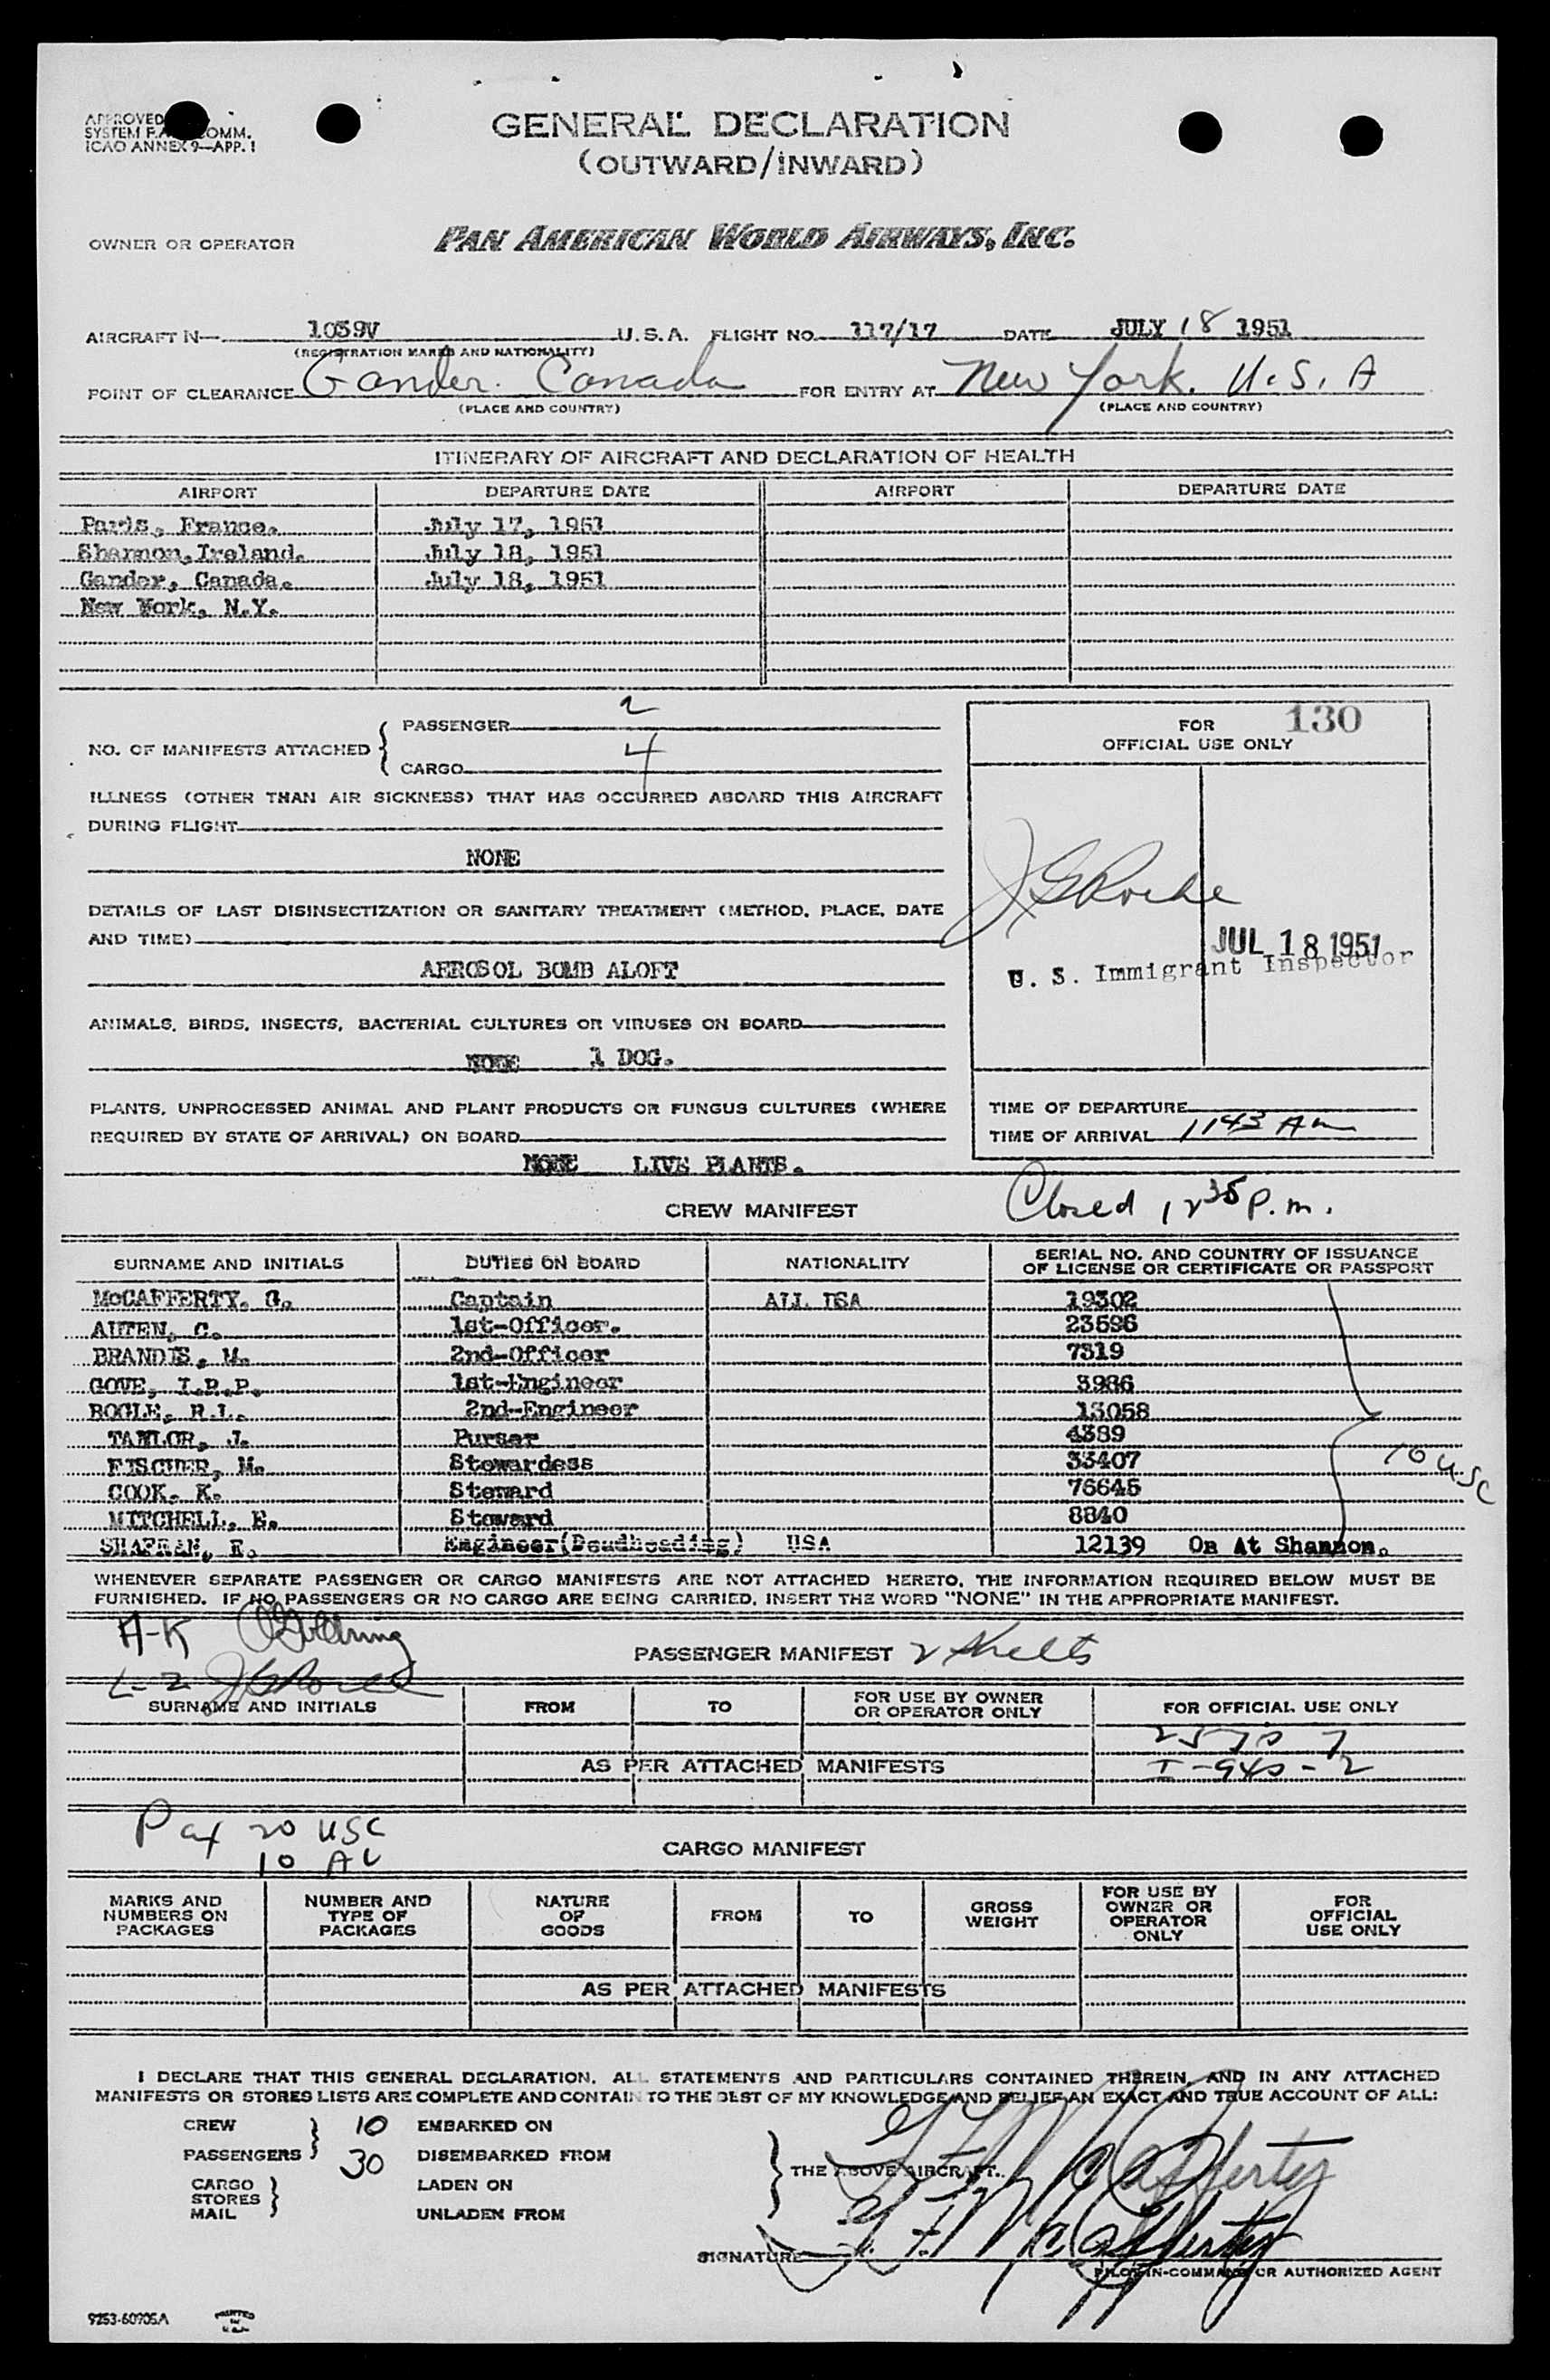 APPROVED
SYSTEM P.A. COMM.
ICAO ANNEX 9—APP. 1
GENERAL DECLARATION
(OUTWARD/INWARD)
OWNER OR OPERATOR PAN AMERICAN WORLD AIRWAYS, INC.
AIRCRAFT N— 1039V U.S.A. FLIGHT NO. 117/17 DATE JULY 18 1951
(REGISTRATION MARKS AND NATIONALITY)
POINT OF CLEARANCE Gander. Canada FOR ENTRY AT New York. U.S.A
(PLACE AND COUNTRY) (PLACE AND COUNTRY)
ITINERARY OF AIRCRAFT AND DECLARATION OF HEALTH
AIRPORT DEPARTURE DATE AIRPORT DEPARTURE DATE
Paris, France. July 17, 1951
Shannon, Ireland. July 18, 1951
Gander, Canada. July 18, 1951
New York, N.Y.
NO. OF MANIFESTS ATTACHED
PASSENGER 2
CARGO 4
ILLNESS (OTHER THAN AIR SICKNESS) THAT HAS OCCURRED ABOARD THIS AIRCRAFT
DURING FLIGHT
NONE
DETAILS OF LAST DISINSECTIZATION OR SANITARY TREATMENT (METHOD, PLACE, DATE
AND TIME)
AEROSOL BOMB ALOFT
ANIMALS, BIRDS, INSECTS, BACTERIAL CULTURES OR VIRUSES ON BOARD
NONE 1 DOG.
PLANTS, UNPROCESSED ANIMAL AND PLANT PRODUCTS OR FUNGUS CULTURES (WHERE
REQUIRED BY STATE OF ARRIVAL) ON BOARD
NONE LIVE PLANTS.
FOR 130
OFFICIAL USE ONLY
J G Roche
JUL 18 1951
U. S. Immigrant Inspector
TIME OF DEPARTURE
TIME OF ARRIVAL 1143 Am
Closed 12 35 P.m.
CREW MANIFEST
SURNAME AND INITIALS DUTIES ON BOARD NATIONALITY SERIAL NO. AND COUNTRY OF ISSUANCE
OF LICENSE OR CERTIFICATE OR PASSPORT
McCAFFERTY, G. Captain ALL USA 19302
AUTEN, C. 1st-Officer. 23596
BRANDIS, M. 2nd-Officer 7319
GOVE, I.R.P. 1st-Engineer 3986
BOGLE, R.L. 2nd-Engineer 13058
TAYLOR, J. Purser 4389
FISCHER, M. Stewardess 33407
10 USC
COOK, K. Steward 76645
MITCHELL, E. Steward 8840
SHAFRAN, E. Engineer(Deadheading) USA 12139 On At Shannon.
WHENEVER SEPARATE PASSENGER OR CARGO MANIFESTS ARE NOT ATTACHED HERETO, THE INFORMATION REQUIRED BELOW MUST BE
FURNISHED. IF NO PASSENGERS OR NO CARGO ARE BEING CARRIED, INSERT THE WORD "NONE" IN THE APPROPRIATE MANIFEST.
A-K
PASSENGER MANIFEST 2 sheets
L-Z J G Roche
SURNAME AND INITIALS FROM TO FOR USE BY OWNER
OR OPERATOR ONLY FOR OFFICIAL USE ONLY
AS PER ATTACHED MANIFESTS
I-940-2
Pax 20 USC
10 AL
CARGO MANIFEST
MARKS AND
NUMBERS ON
PACKAGES
NUMBER AND
TYPE OF
PACKAGES
NATURE
OF
GOODS
FROM
TO
GROSS
WEIGHT
FOR USE BY
OWNER OR
OPERATOR
ONLY
FOR
OFFICIAL
USE ONLY
AS PER ATTACHED MANIFESTS
I DECLARE THAT THIS GENERAL DECLARATION, ALL STATEMENTS AND PARTICULARS CONTAINED THEREIN, AND IN ANY ATTACHED
MANIFESTS OR STORES LISTS ARE COMPLETE AND CONTAIN TO THE BEST OF MY KNOWLEDGE AND BELIEF AN EXACT AND TRUE ACCOUNT OF ALL:
CREW 10 EMBARKED ON
PASSENGERS 30 DISEMBARKED FROM
CARGO LADEN ON
STORES
MAIL UNLADEN FROM
THE ABOVE AIRCRAFT.
G F McCafferty
G. F. McCafferty
SIGNATURE
PILOT-IN-COMMAND OR AUTHORIZED AGENT
9253-60905A
PRINTED
IN
U.S.A.